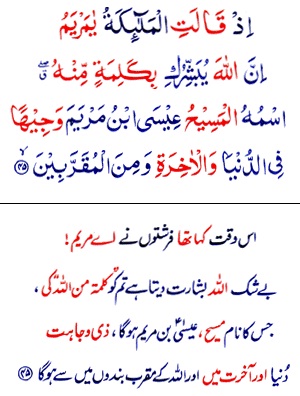 اِذْ قَالَتِ الْمَلٰٓئِكَةُ يٰمَرْيَمُ
اِنَّ اللّٰهَ يُبَشِّرُكِ بِكَلِمَةٍ مِّنْهُ ۖۗ
اسْمُهُ الْمَسِيْحُ عِيْسَى ابْنُ مَرْيَمَ وَجِيْهًا
فِى الدُّنْيَا وَالْاٰخِرَةِ وَمِنَ الْمُقَرَّبِيْنَ ۙ﴿۴۵﴾
اس وقت کہا تھا فرشتوں نے اے مریم!
بے شک اللہ بشارت دیتا ہے تم کو کلمۃ من اللہ کی،
جس کا نام مسیح، عیسیٰؑ ابن مریم ہوگا، ذی وجاہت
دُنیا اور آخرت میں اور اللہ کے مقرب بندوں میں سے ہوگا ﴿۴۵﴾